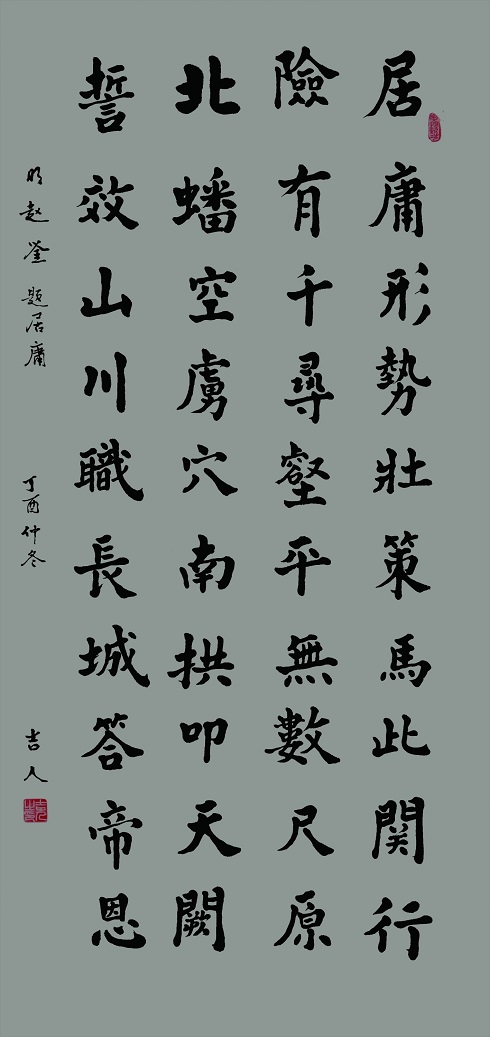 居庸形勢壯策馬此関行
險有千尋壑平無數尺原
北蟠空虜穴南拱叩天闕
誓效山川職長城答帝恩
明赵釜题居庸
丁酉仲冬
吉人